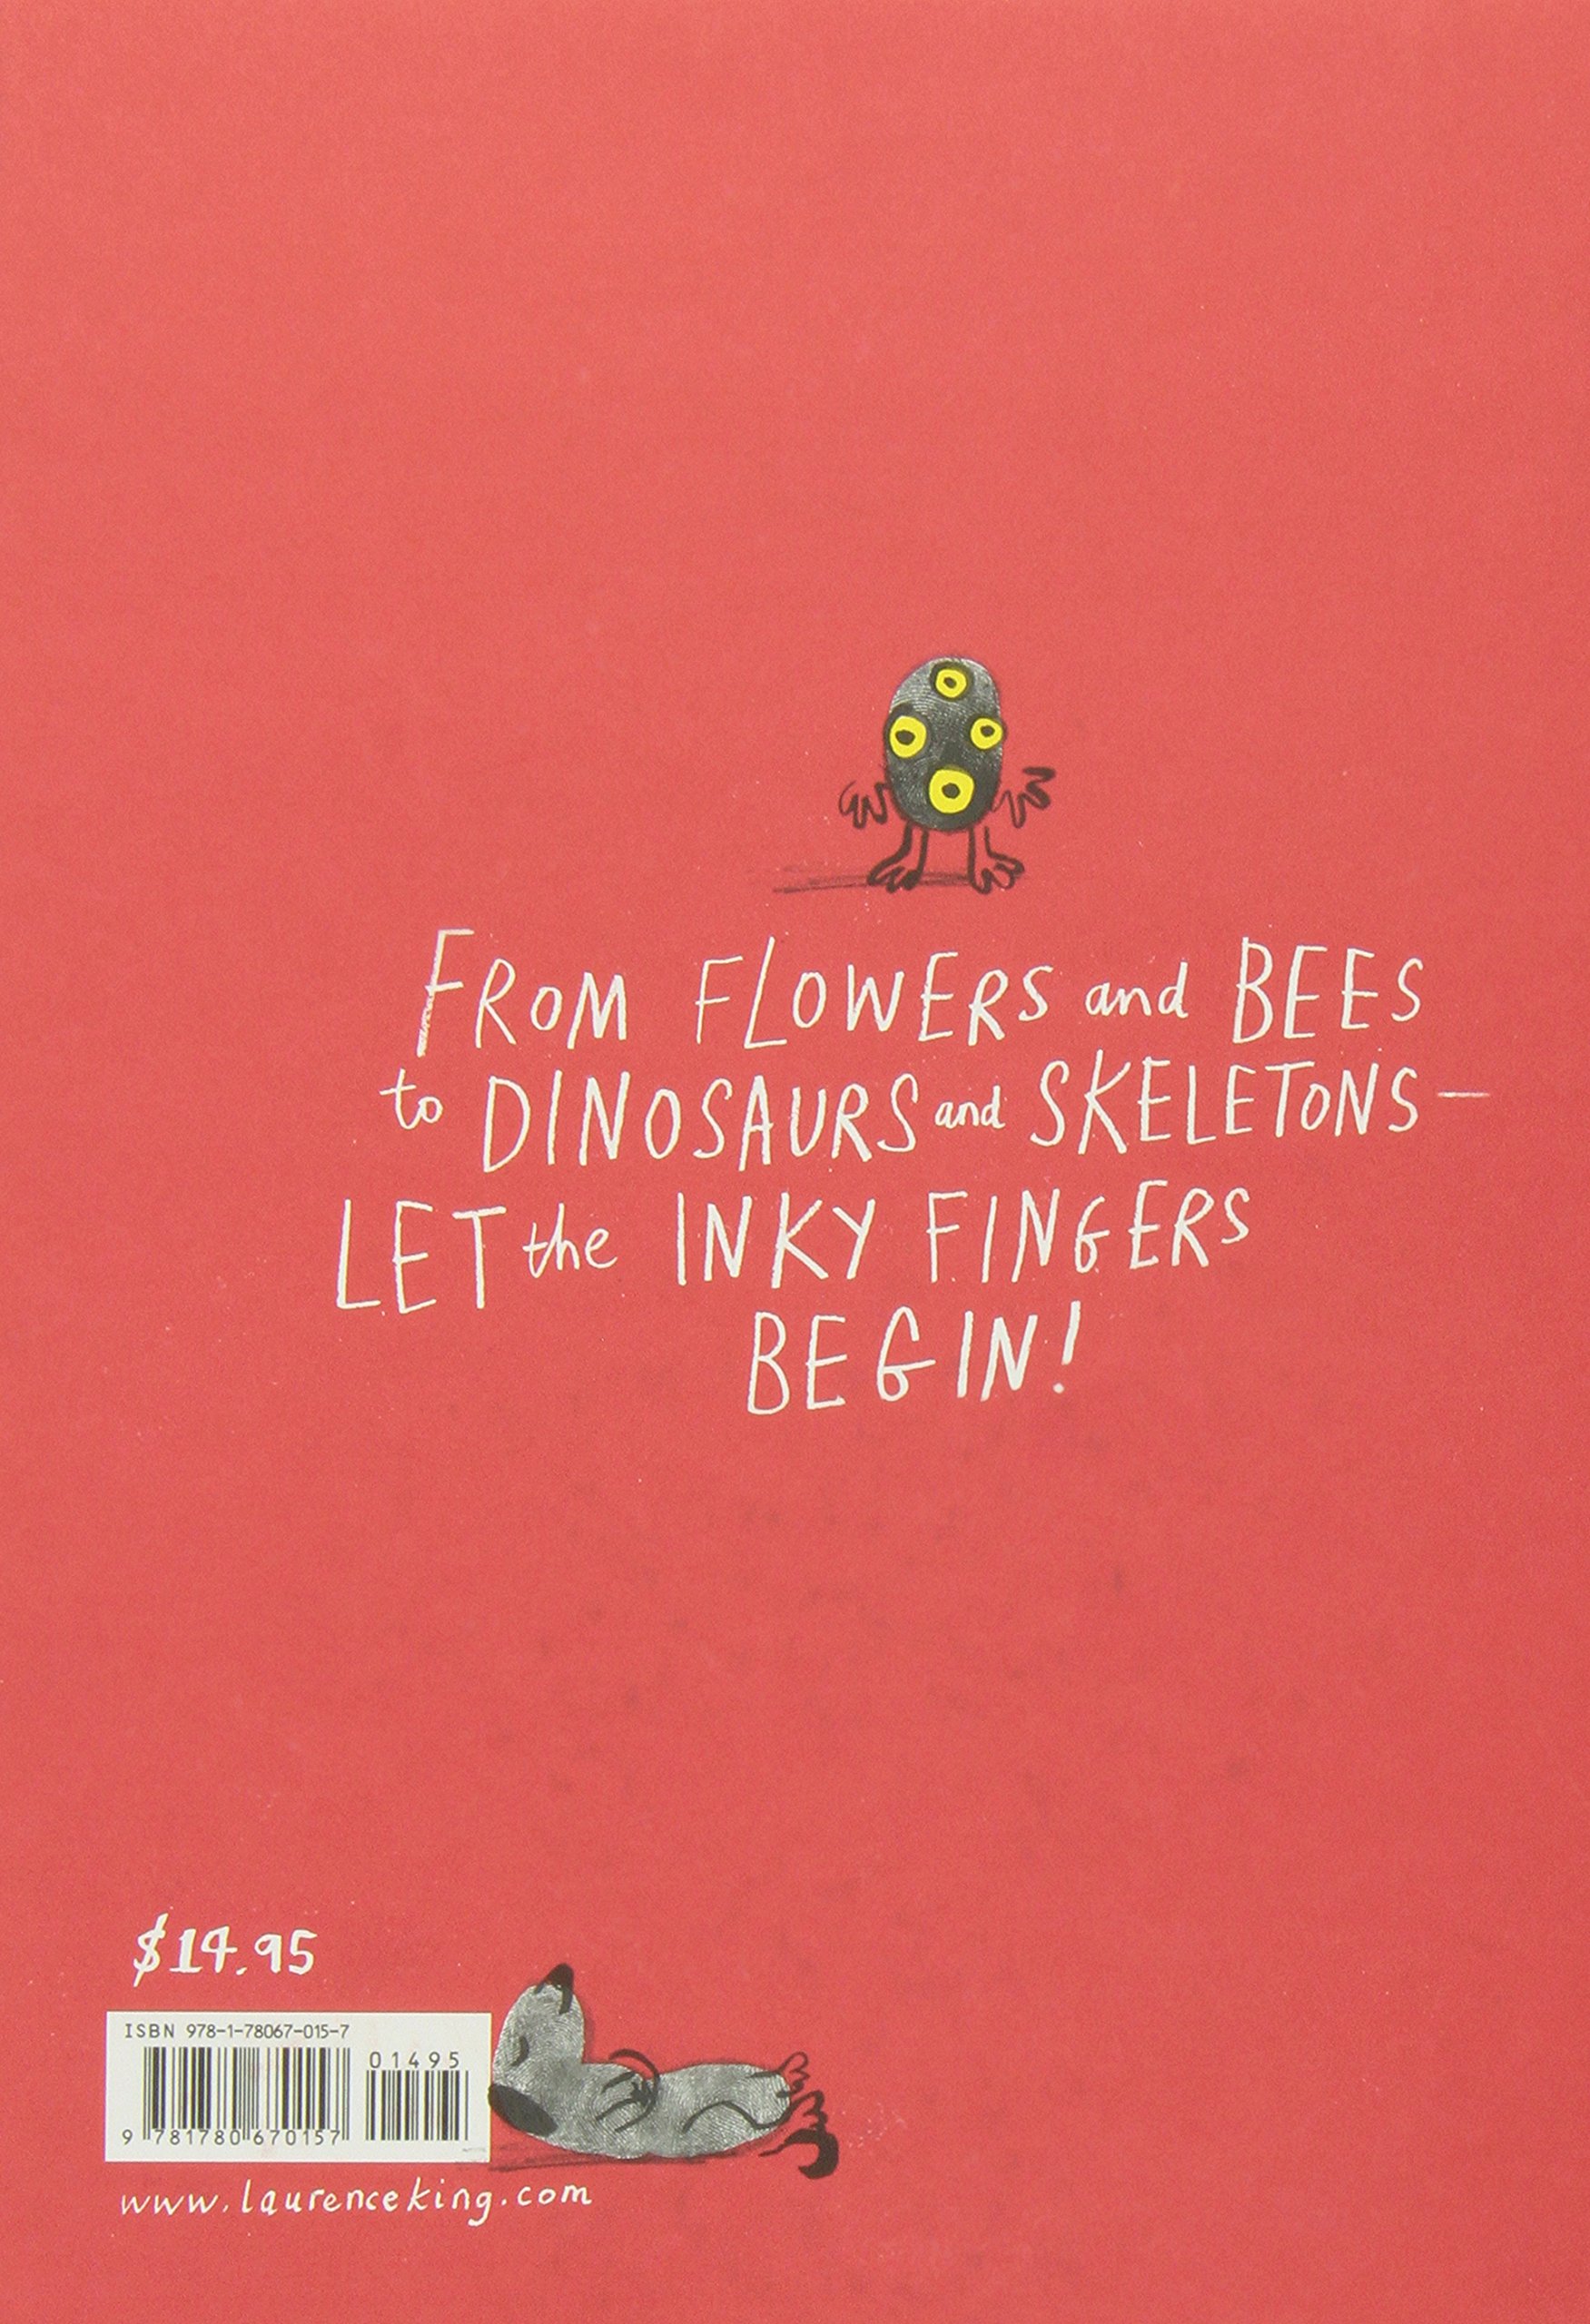 FROM FLOWERS and BEES
to DINOSAURS and SKELETONS—
LET the INKY FINGERS
BEGIN!
$14.95
ISBN 978-1-78067-015-7
01495
9 781780 670157
www.laurenceking.com